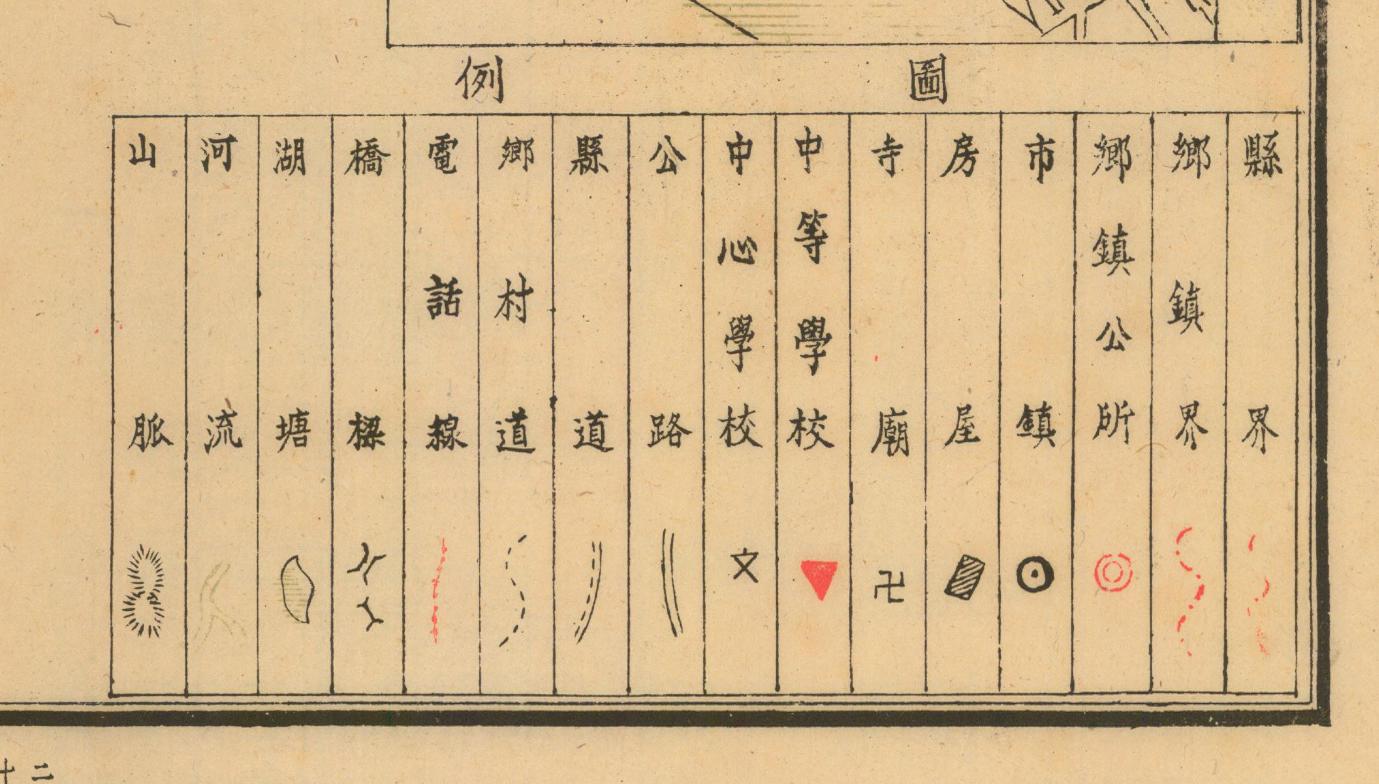 圖例
縣界
鄉鎮界
鄉鎮公所
市鎮
房屋
寺廟
中等學校
中心學校
文
公路
縣道
鄉村道
電話線
橋樑
湖塘
河流
山脈
二十